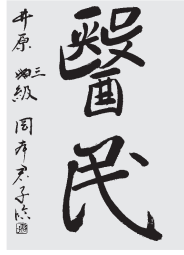 醫民
井原 三級 岡本君子臨